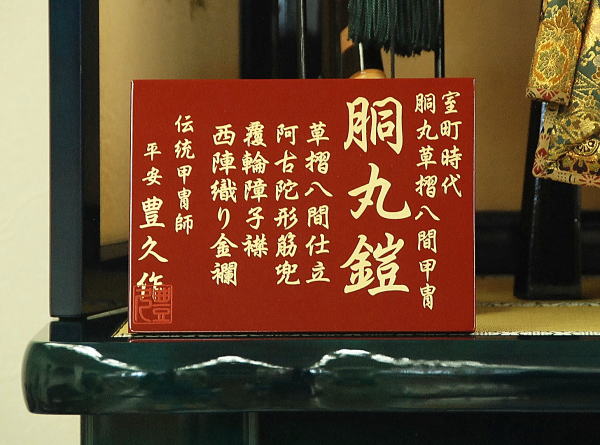 室町時代
胴丸草摺八間甲冑
胴丸鎧
草摺八間仕立
阿古陀形筋兜
覆輪障子襟
西陣織り金襴
伝統甲冑師
平安豊久作